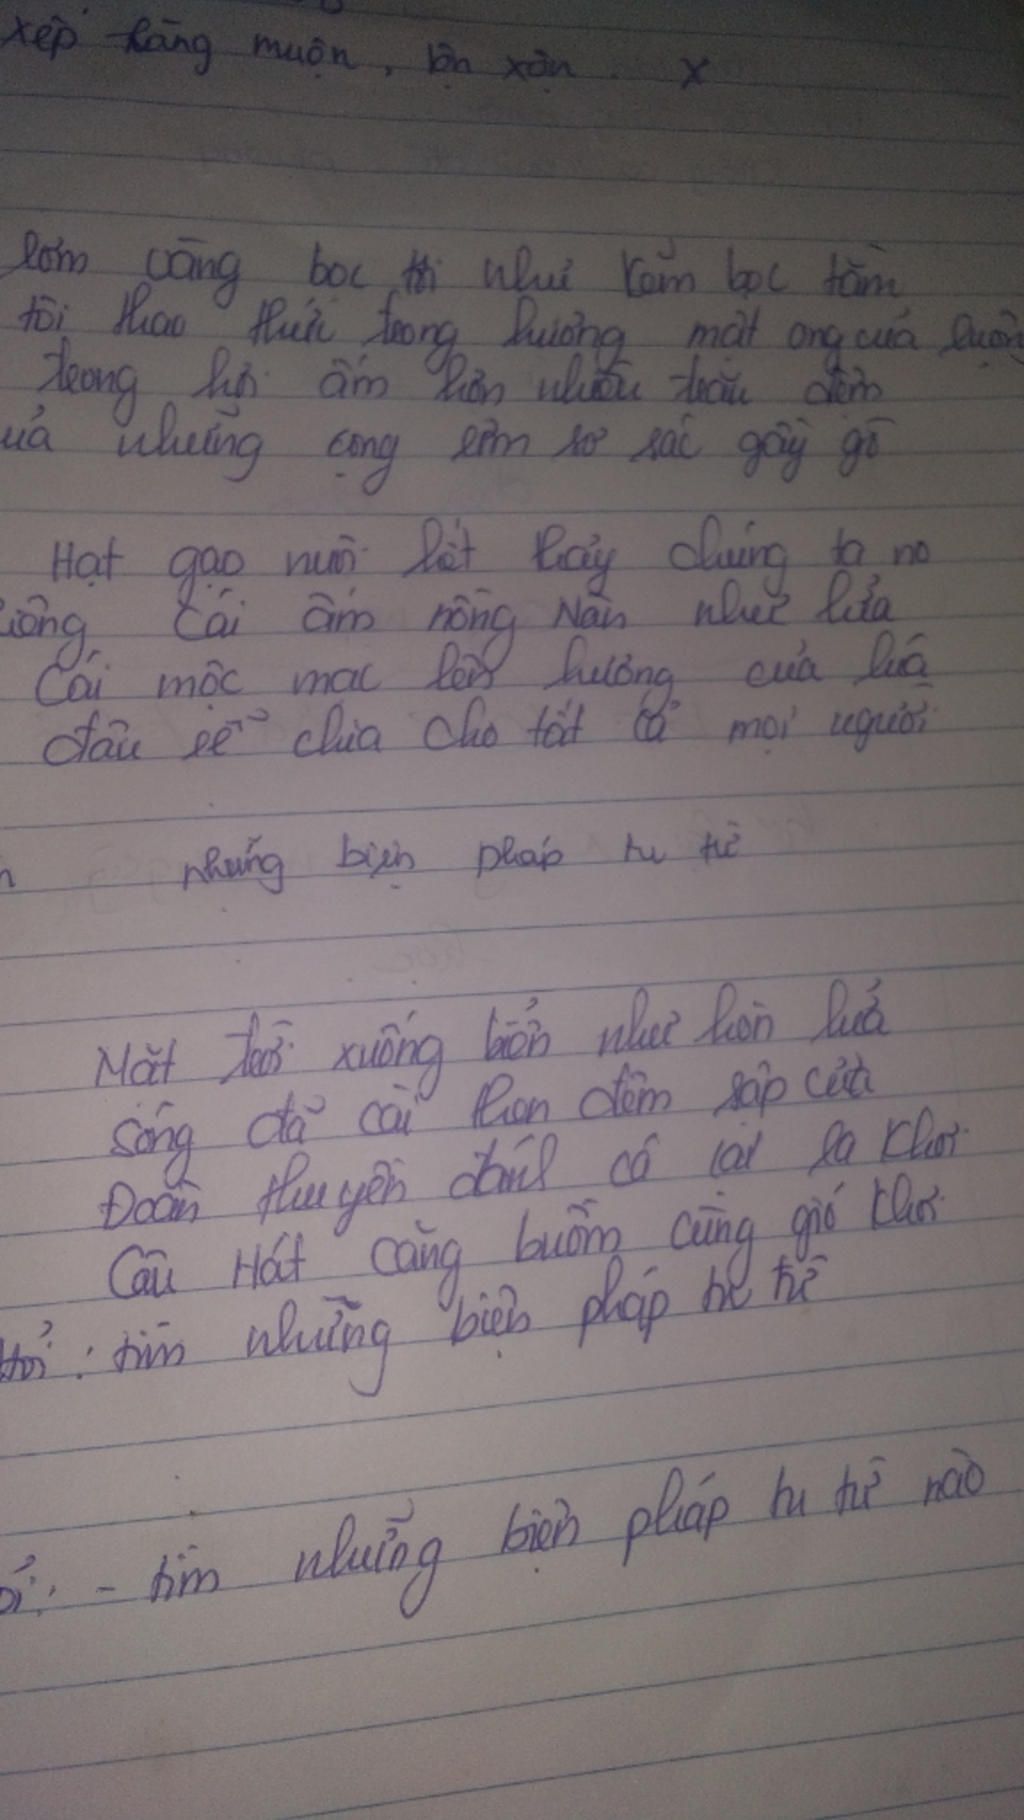 xếp hàng muộn, lộn xộn. x
Rơm vàng bọc tôi như kém bọc tằm
tôi thao thức trong hương mật ong của ruộn
trong hơi ấm hơn nhiều chăn đệm
ủa những cọng rơm sơ sác gầy gò
Hạt gạo nuôi hết thảy chúng ta no
iêng cái ấm nồng Nàn như lửa
Cái mộc mạc lên hương của lúa
đâu sể chia cho tất cả mọi người
những biện pháp tu từ
Mặt trời xuống biển như hòn lửa
sóng đã cài then đêm sập cửa
Đoàn thuyền đánh cá lại ra khơi
Câu Hát căng buồm cùng gió khơi
Hỏi: tìm những biện pháp tu từ
ỏi: - tìm những biện pháp tu từ nào